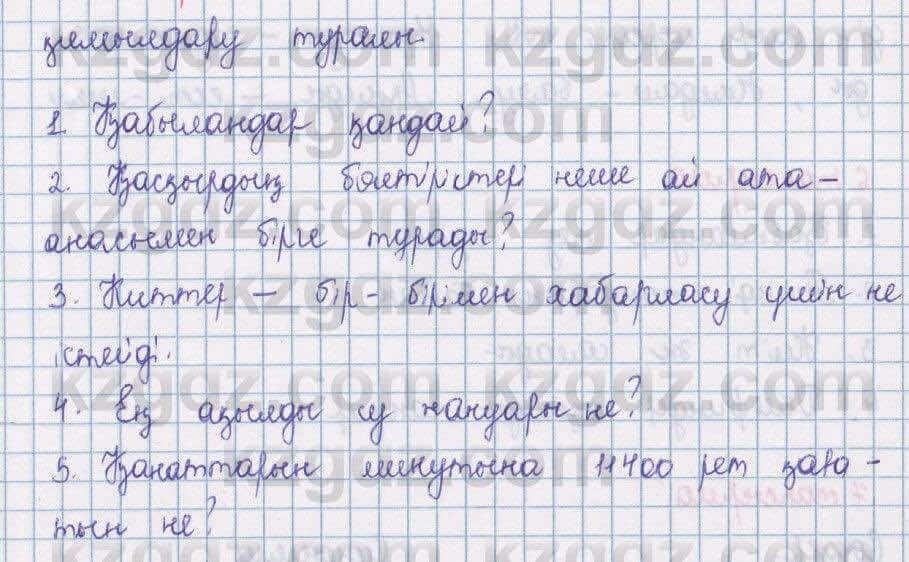 қимылдару туралы.
1. Қабыландар қандай?
2. Қасқырдың бөлтіріктері неше ай ата –
анасымен бірге тұрады?
3. Киттер – бір-бірімен хабарласу үшін не
істейді.
4. Ең ақылды су жануары не?
5. Қанаттарын минутына 11400 рет қаға –
тын не?
kzgdz.com